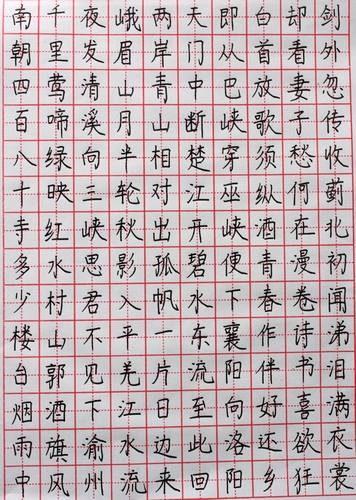 剑外忽传收蓟北初闻涕泪满衣裳
却看妻子愁何在漫卷诗书喜欲狂
白首放歌须纵酒青春作伴好还乡
即从巴峡穿巫峡便下襄阳向洛阳
天门中断楚江开碧水东流至此回
两岸青山相对出孤帆一片日边来
峨眉山月半轮秋影入平羌江水流
夜发清溪向三峡思君不见下渝州
千里莺啼绿映红水村山郭酒旗风
南朝四百八十寺多少楼台烟雨中